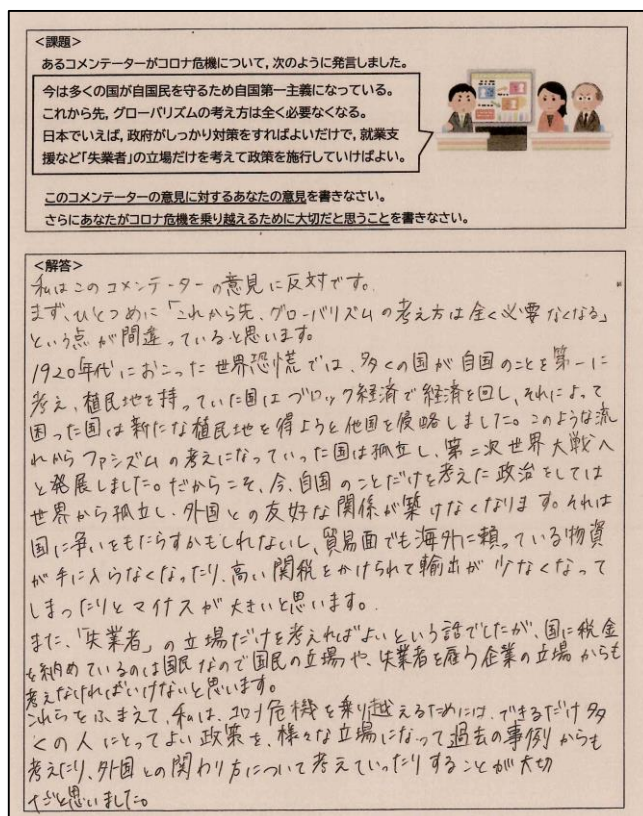 ＜課題＞
あるコメンテーターがコロナ危機について，次のように発言しました。
今は多くの国が自国民を守るため自国第一主義になっている。
これから先，グローバリズムの考え方は全く必要なくなる。
日本でいえば，政府がしっかり対策をすればよいだけで，就業支
援など「失業者」の立場だけを考えて政策を施行していけばよい。
このコメンテーターの意見に対するあなたの意見を書きなさい。
さらにあなたがコロナ危機を乗り越えるために大切だと思うことを書きなさい。
＜解答＞
私はこのコメンテーターの意見に反対です。
まず、ひとつめに「これから先、グローバリズムの考え方は全く必要なくなる」
という点が間違っていると思います。
1920年代におこった世界恐慌では、多くの国が自国のことを第一に
考え、植民地を持っていた国はブロック経済で経済を回し、それによって
困った国は新たな植民地を得ようと他国を侵略しました。このような流
れからファシズムの考えになっていった国は孤立し、第二次世界大戦へ
と発展しました。だからこそ、今、自国のことだけを考えた政治をしては
世界から孤立し、外国との友好な関係が築けなくなります。それは
国に争いをもたらすかもしれないし、貿易面でも海外に頼っている物資
が手に入らなくなったり、高い関税をかけられて輸出が少なくなって
しまったりとマイナスが大きいと思います。
また、「失業者」の立場だけを考えればよいという話でしたが、国に税金
を納めているのは国民なので国民の立場や、失業者を雇う企業の立場からも
考えなければいけないと思います。
これらをふまえて、私は、コロナ危機を乗り越えるためには、できるだけ多
くの人にとってよい政策を、様々な立場になって過去の事例からも
考えたり、外国との関わり方について考えていったりすることが大切
だと思いました。